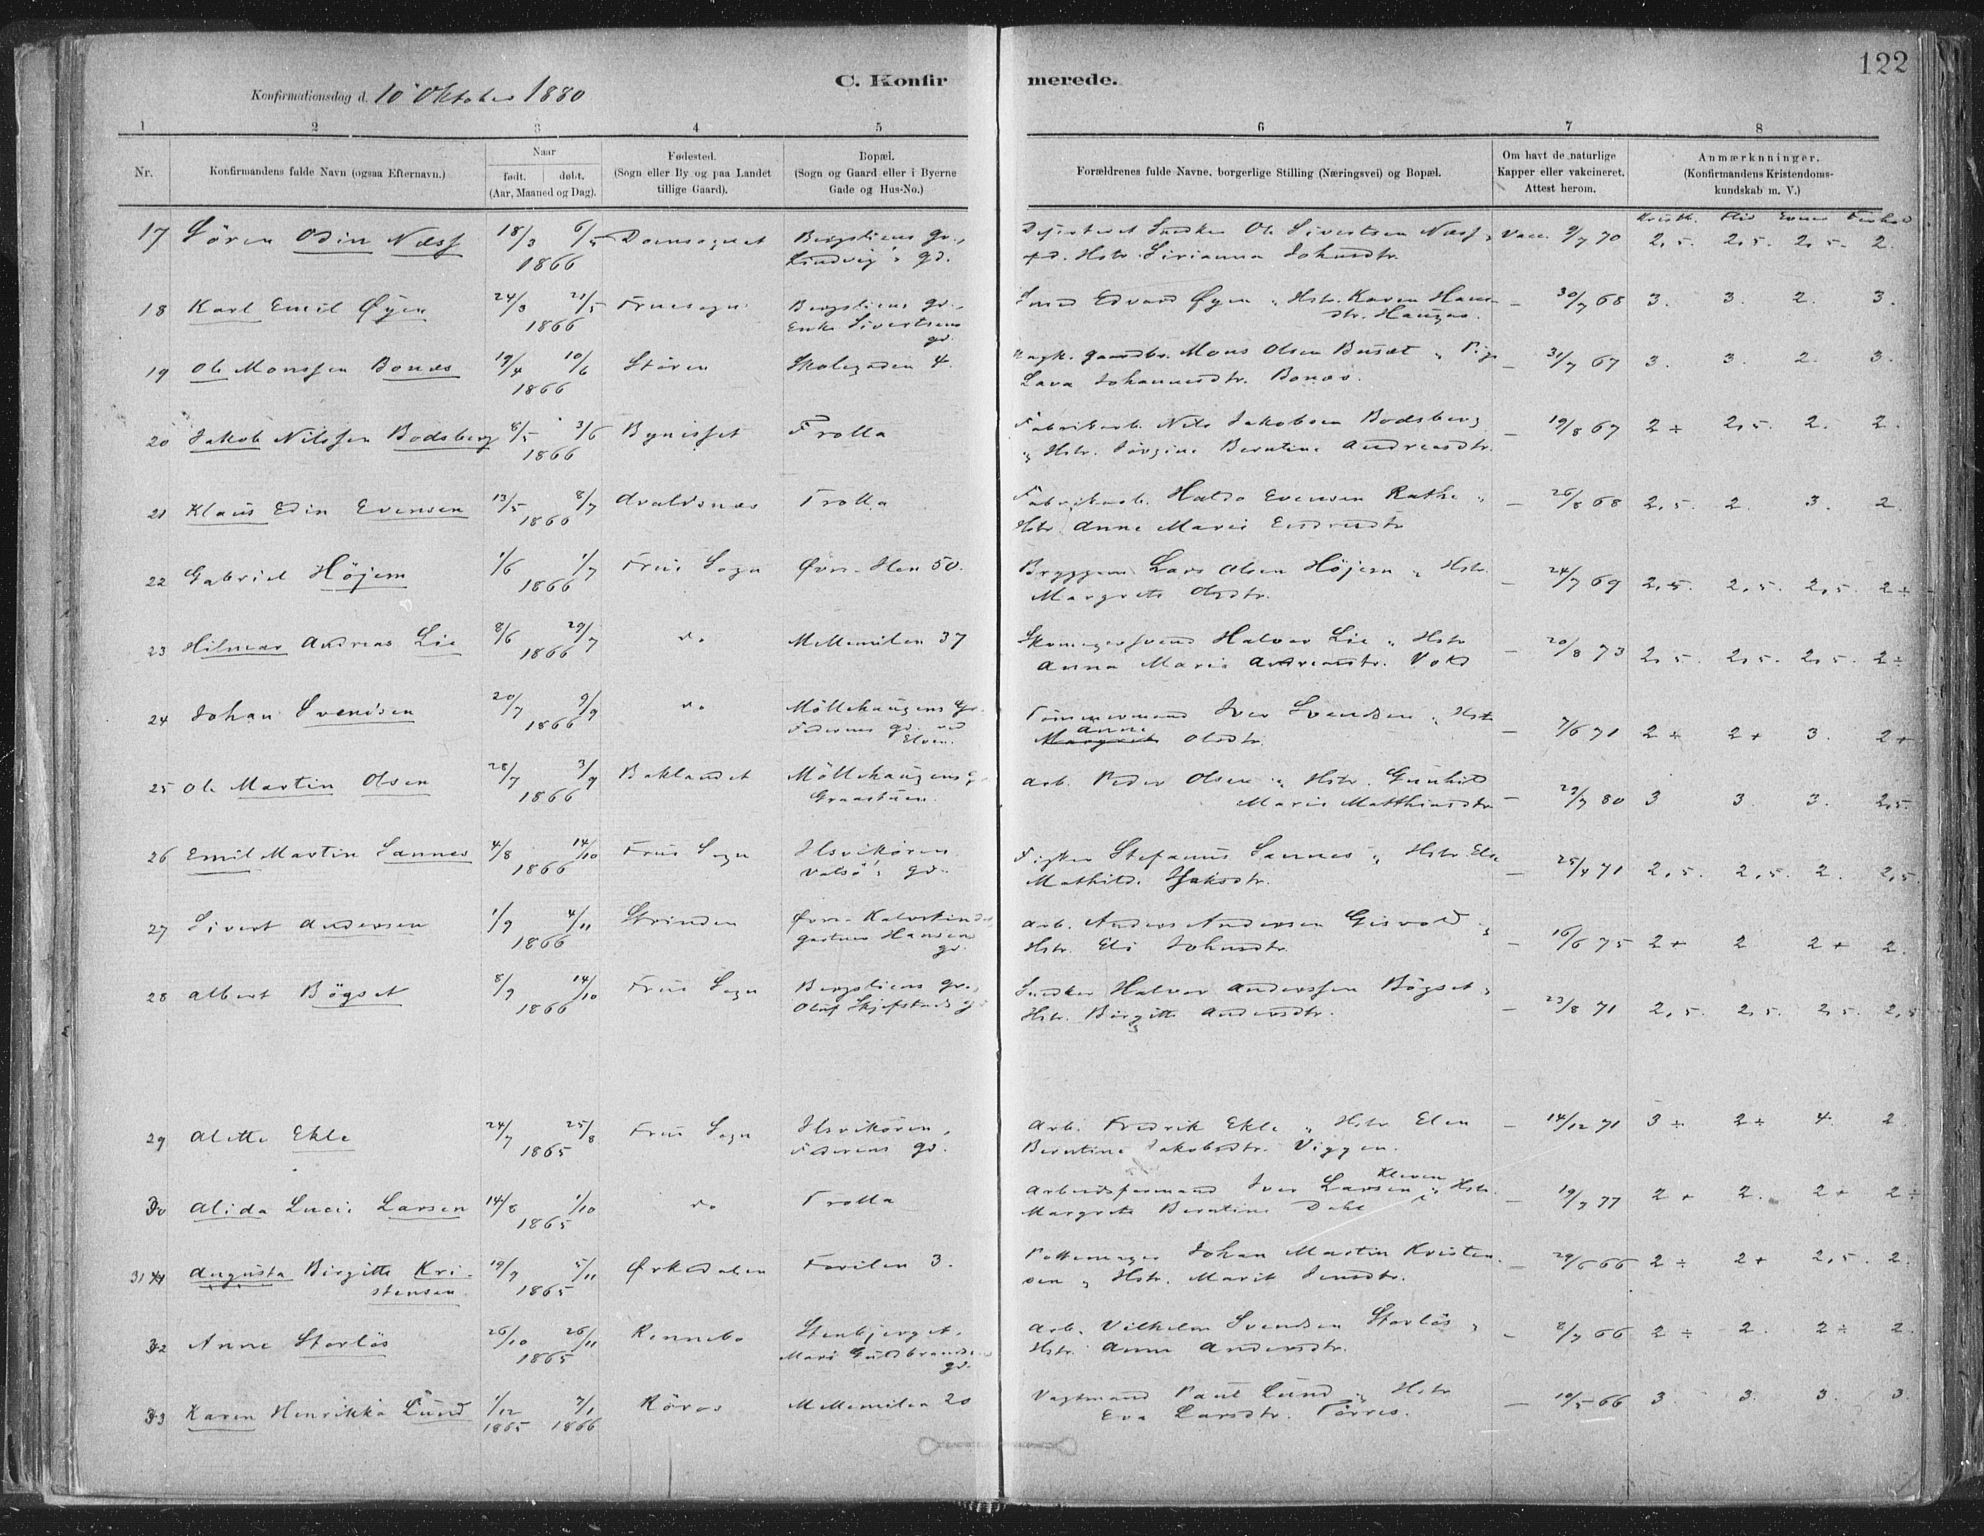 122
C. Konfirmerede.
Konfirmationsdag d. 10 Oktober 1880
1 2 3 4 5 6 7 8
Nr.
Konfirmandens fulde Navn (ogsaa Efternavn.)
Naar
født. døbt.
(Aar, Maaned og Dag).
Fødested.
(Sogn eller By og paa Landet
tillige Gaard).
Bopæl.
(Sogn og Gaard eller i Byerne
Gade og Hus-No.)
Forældrenes fulde Navne, borgerlige Stilling (Næringsvei) og Bopæl.
Om havt de naturlige
Kapper eller vakcineret.
Attest herom.
Anmærknninger.
(Konfirmandens Kristendoms-
kundskab m. V.)
Kristk. Flid Evner Forhold
17 Sören Odin Næss 18/3 6/5 Domsognet Bergsliens gd., Snedker Ole Sivertsen Næss Vacc. 9/7 70 2,5. 2,5. 2,5. 2.
1866 Lindvig's gd. Hstr. Sirianna Johnsdtr.
18 Karl Emil Øyen 24/3 21/5 Fruesogn Bergsliens gd. Smed Edvard Øyen " Hstr. Karen Hans- — 30/7 68 3. 3. 2. 3.
1866 Enke Sivertsens dtr. Hauges.
gd.
19 Ole Monssen Bonæs 19/4 10/6 Stören Skolegaden 4. gaardbr. Mons Olsen " Pige — 31/7 67 3. 3. 2. 3.
1866 Johannesdtr. Bonæs.
20 Jakob Nilssen Bodsberg 8/5 3/6 Bynesset Trolla Fabrikarb. Nils Jakobsen Bodsberg — 19/8 67 2÷ 2,5. 2. 2.
1866 " Hstr. Jörgine Berntine Andreasdtr.
21 Klaus Edin Evensen 13/5 8/7 Avaldsnæs Trolla Fabrikarb. Evensen " — 26/8 68 2,5 2. 3. 2.
1866 Hstr. Anne Marie
22 Gabriel Höjem 1/6 1/7 Frue Sogn Øvre-Ilen 50. Lars Olsen Höjem " Hstr. — 24/7 69 2,5. 2,5. 2,5. 2÷
1866 Margrete Olsdtr.
23 Hilmar Andreas Lie 8/6 29/7 do Mellemilen 37 Skomagersvend Halvor Lie " Hstr — 20/8 73 2,5. 2,5. 2,5. 2÷
1866 Anna Marie Andreasdtr.
24 Johan Svendsen 20/7 9/9 do Möllehaugens gd. Tömmermand Iver Svendsen " Hstr — 7/6 71 2÷ 2+ 3. 2+
1866 gd. ved Elven. Anne Olsdtr.
25 Ole Martin Olsen 28/7 3/9 Baklandet Möllehaugens Arb. Peder Olsen " Hstr. Gunhild — 29/7 80 3 3. 3. 2,5.
1866 Graastuen. Marie Matthiasdtr
26 Emil Martin Sannes 4/8 14/10 Frue Sogn Ilsvikören Fisker Stefanus Sannes " Hstr. Else — 25/4 71 2,5. 2,5. 2. 2,5
1866 Valsö's gd. Mathilde Isaksdtr.
27 Sivert Andersen 1/9 4/11 Strinden Øvre-Kalvskindet Arb. Anders Andersen Gisvold " — 16/6 75 2+ 2 2+ 2.
1866 gartner Hansens Hstr. Eli Johnsdtr.
gd.
28 Albert Bögset 8/9 14/10 Frue Sogn Bergsliens gd., Snedker Halvor Anderssen Bögset " — 23/8 71 2,5. 2,5. 2,5. 2,5
1866 Oluf Skjefstads gd Hstr. Birgitte Andersdtr.
29 Alette Ekle 24/7 25/8 Frue Sogn Ilsvikören, Arb. Fredrik Ekle " Hstr Elen — 14/12 71 3÷ 2÷ 4. 2.
1865 gd. Berntine Jakobsdtr. Viggen.
30 Alida Lucie Larsen 14/8 1/10 do Trolla Arbeidsformand Iver Larsen Kleven " Hstr. — 19/7 77 2+ 2. 2+ 2÷
1865 Margrete Berntine Dahl
31 Augusta Birgitte Kri- 19/9 5/11 Ørkedalen Fovilen 3. Pottemager Johan Martin Kristen- — 29/6 66 2÷ 2+ 2,5. 2.
stensen. 1865 sen " Hstr. Marit Jensdtr.
32 Anne Storlös 26/10 26/11 Rennebo Stenbjerget, Arb. Vilhelm Svendsen Storlös " — 8/7 66 2÷ 2. 2÷ 2.
1865 Mari Guldbrandsens gd. Hstr. Anne Andersdtr.
33 Karen Henrikka Lund 1/12 7/1 Röros Mellemilen 20 Vagtmand Paul Lund " Hstr — 10/5 66 3 3. 3. 3.
1865 1866 Eva Larsdtr. Törres.